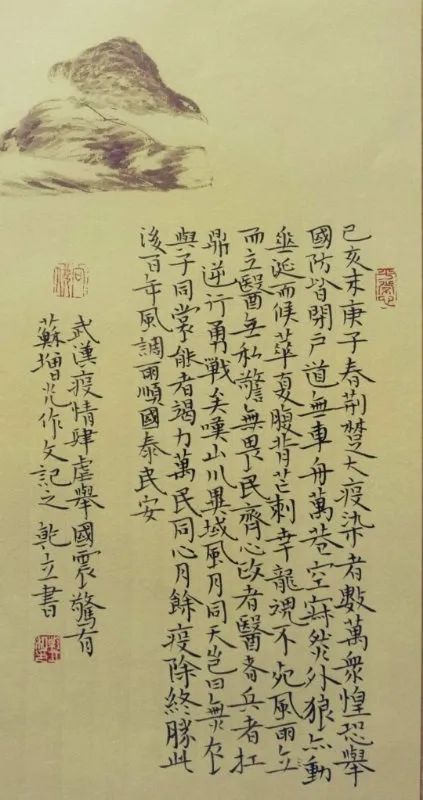 己亥末庚子春荆楚大疫染者數萬眾惶恐舉
國防皆閉戶道無車舟萬巷空寂然外狼亦動
垂延而候華夏腹背芒刺幸龍魂不死風雨立
而立醫無私警無畏民齊心政者醫者兵者扛
鼎逆行勇戰矣嘆山川異域風月同天豈曰無衣
與子同裳能者竭力萬民同心月餘疫除終勝此
後百年風調雨順國泰民安
武漢疫情肆虐舉國震驚有
蘇增作文記之 立書